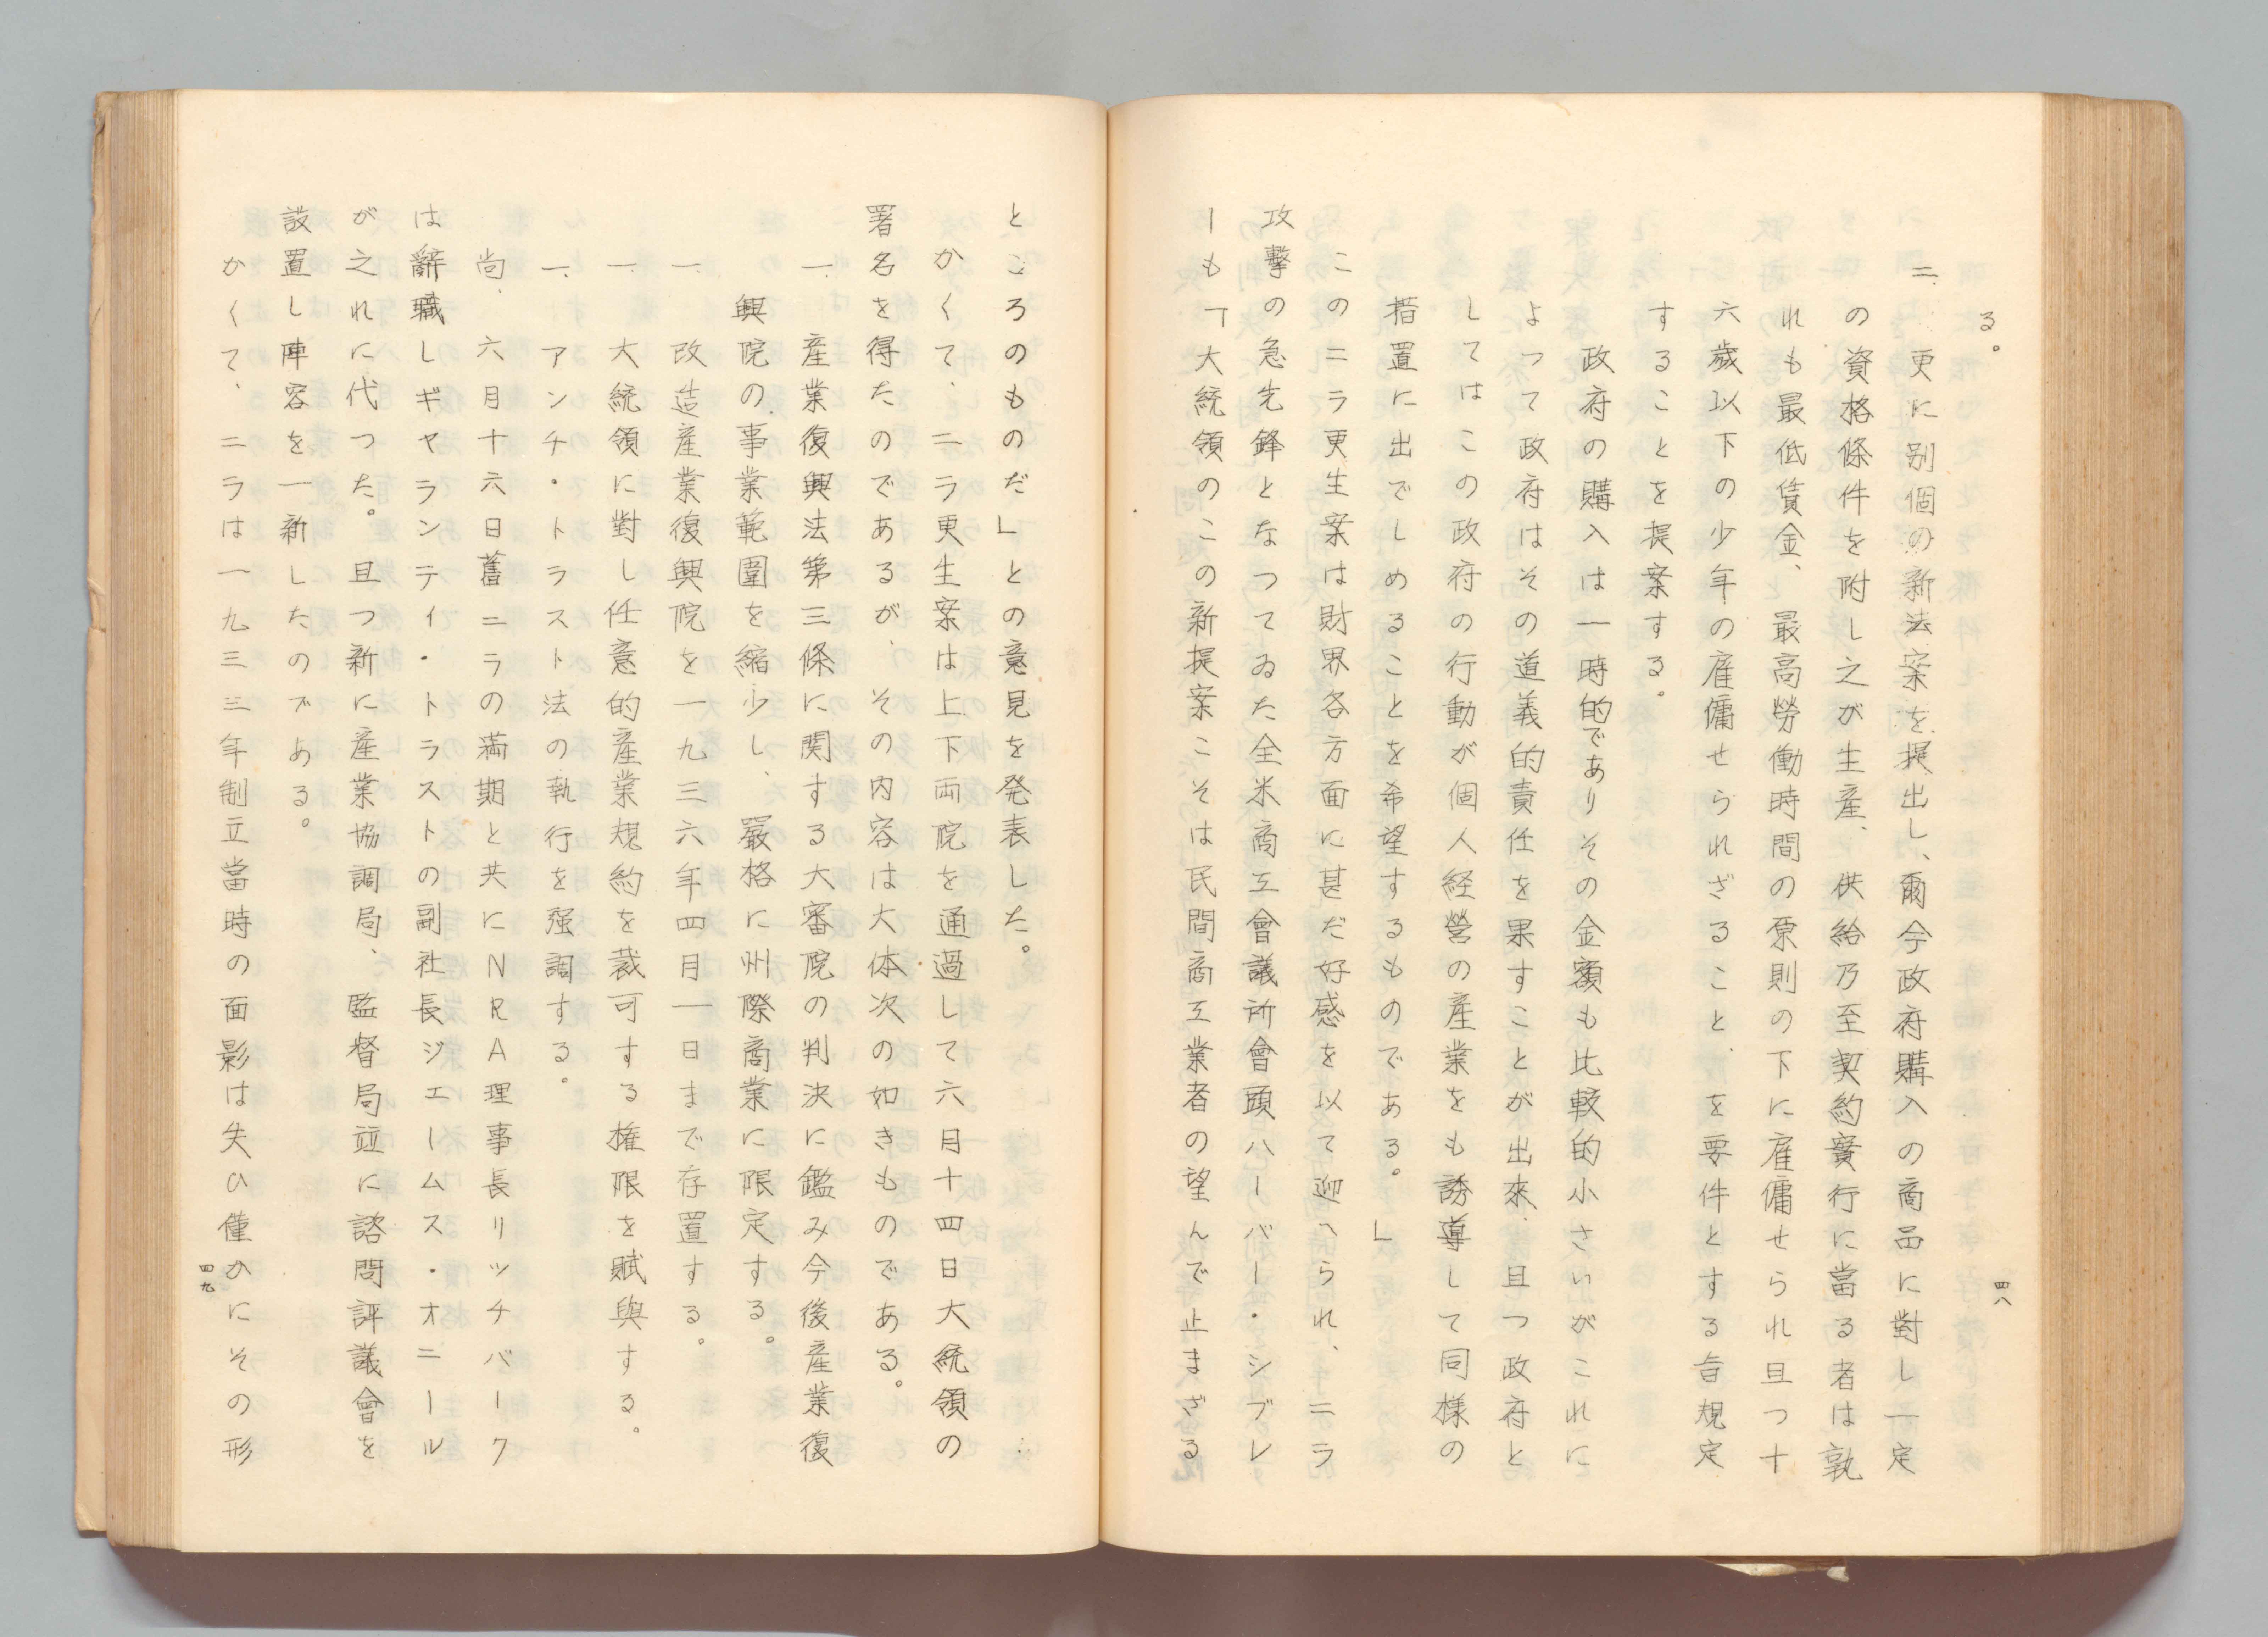 る。
二、更に別個の新法案を提出し、爾今政府購入の商品に對し一定
の資格條件を附し之が生産、供給乃至契約實行に當る者は孰
れも最低賃金、最高勞働時間の原則の下に雇傭せられ且つ十
六歲以下の少年の雇傭せられざること、を要件とする旨規定
することを提案する。
政府の購入は一時的でありその金額も比較的小さいがこれに
よつて政府はその道義的責任を果すことが出來、且つ政府と
してはこの政府の行動が個人経營の産業をも誘導して同様の
措置に出でしめることを希望するものである。」
このニラ更生案は財界各方面に甚だ好感を以て迎へられ、ニラ
攻擊の急先鋒となつてゐた全米商工會議所會頭ハーバー・シブレ
ーも「大統領のこの新提案こそは民間商工業者の望んで止まざる
四八
ところのものだ」との意見を発表した。
かくて、ニラ更生案は上下両院を通過して六月十四日大統領の
署名を得たのであるが、その内容は大体次の如きものである。
一、産業復興法第三條に関する大審院の判決に鑑み今後産業復
興院の事業範圍を縮少し、嚴格に州際商業に限定する。
一、改造産業復興院を一九三六年四月一日まで存置する。
一、大統領に對し任意的産業規約を裁可する権限を賦與する。
一、アンチ・トラスト法の執行を强調する。
尚、六月十六日舊ニラの満期と共にNRA理事長リッチバーク
は辭職しギャランティ・トラストの副社長ジエームス・オニール
が之れに代つた。且つ新に産業協調局、監督局竝に諮問評議會を
設置し陣容を一新したのである。
かくて、ニラは一九三三年制立當時の面影は失ひ僅かにその形
四九